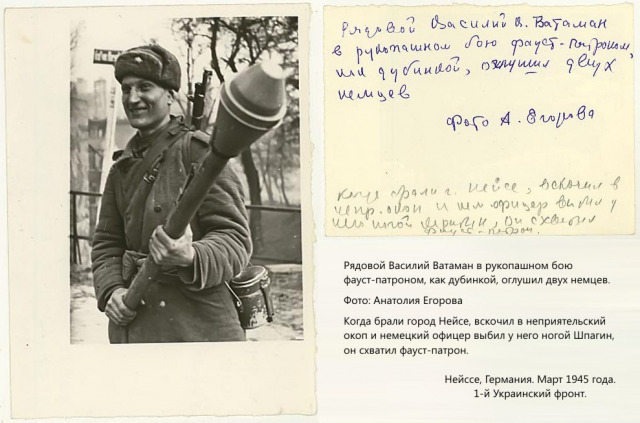 Рядовой Василий В. Ватаман
в рукопашном бою фауст-патроном,
как дубинкой, оглушил двух
немцев
Фото А. Егорова
Когда брали г. Нейсе, вскочил в
непр. окоп и нем офицер выбил у
него ногой шпагин, он схватил
фауст-патрон.
Рядовой Василий Ватаман в рукопашном бою
фауст-патроном, как дубинкой, оглушил двух немцев.
Фото: Анатолия Егорова
Когда брали город Нейсе, вскочил в неприятельский
окоп и немецкий офицер выбил у него ногой Шпагин,
он схватил фауст-патрон.
Нейссе, Германия. Март 1945 года.
1-й Украинский фронт.